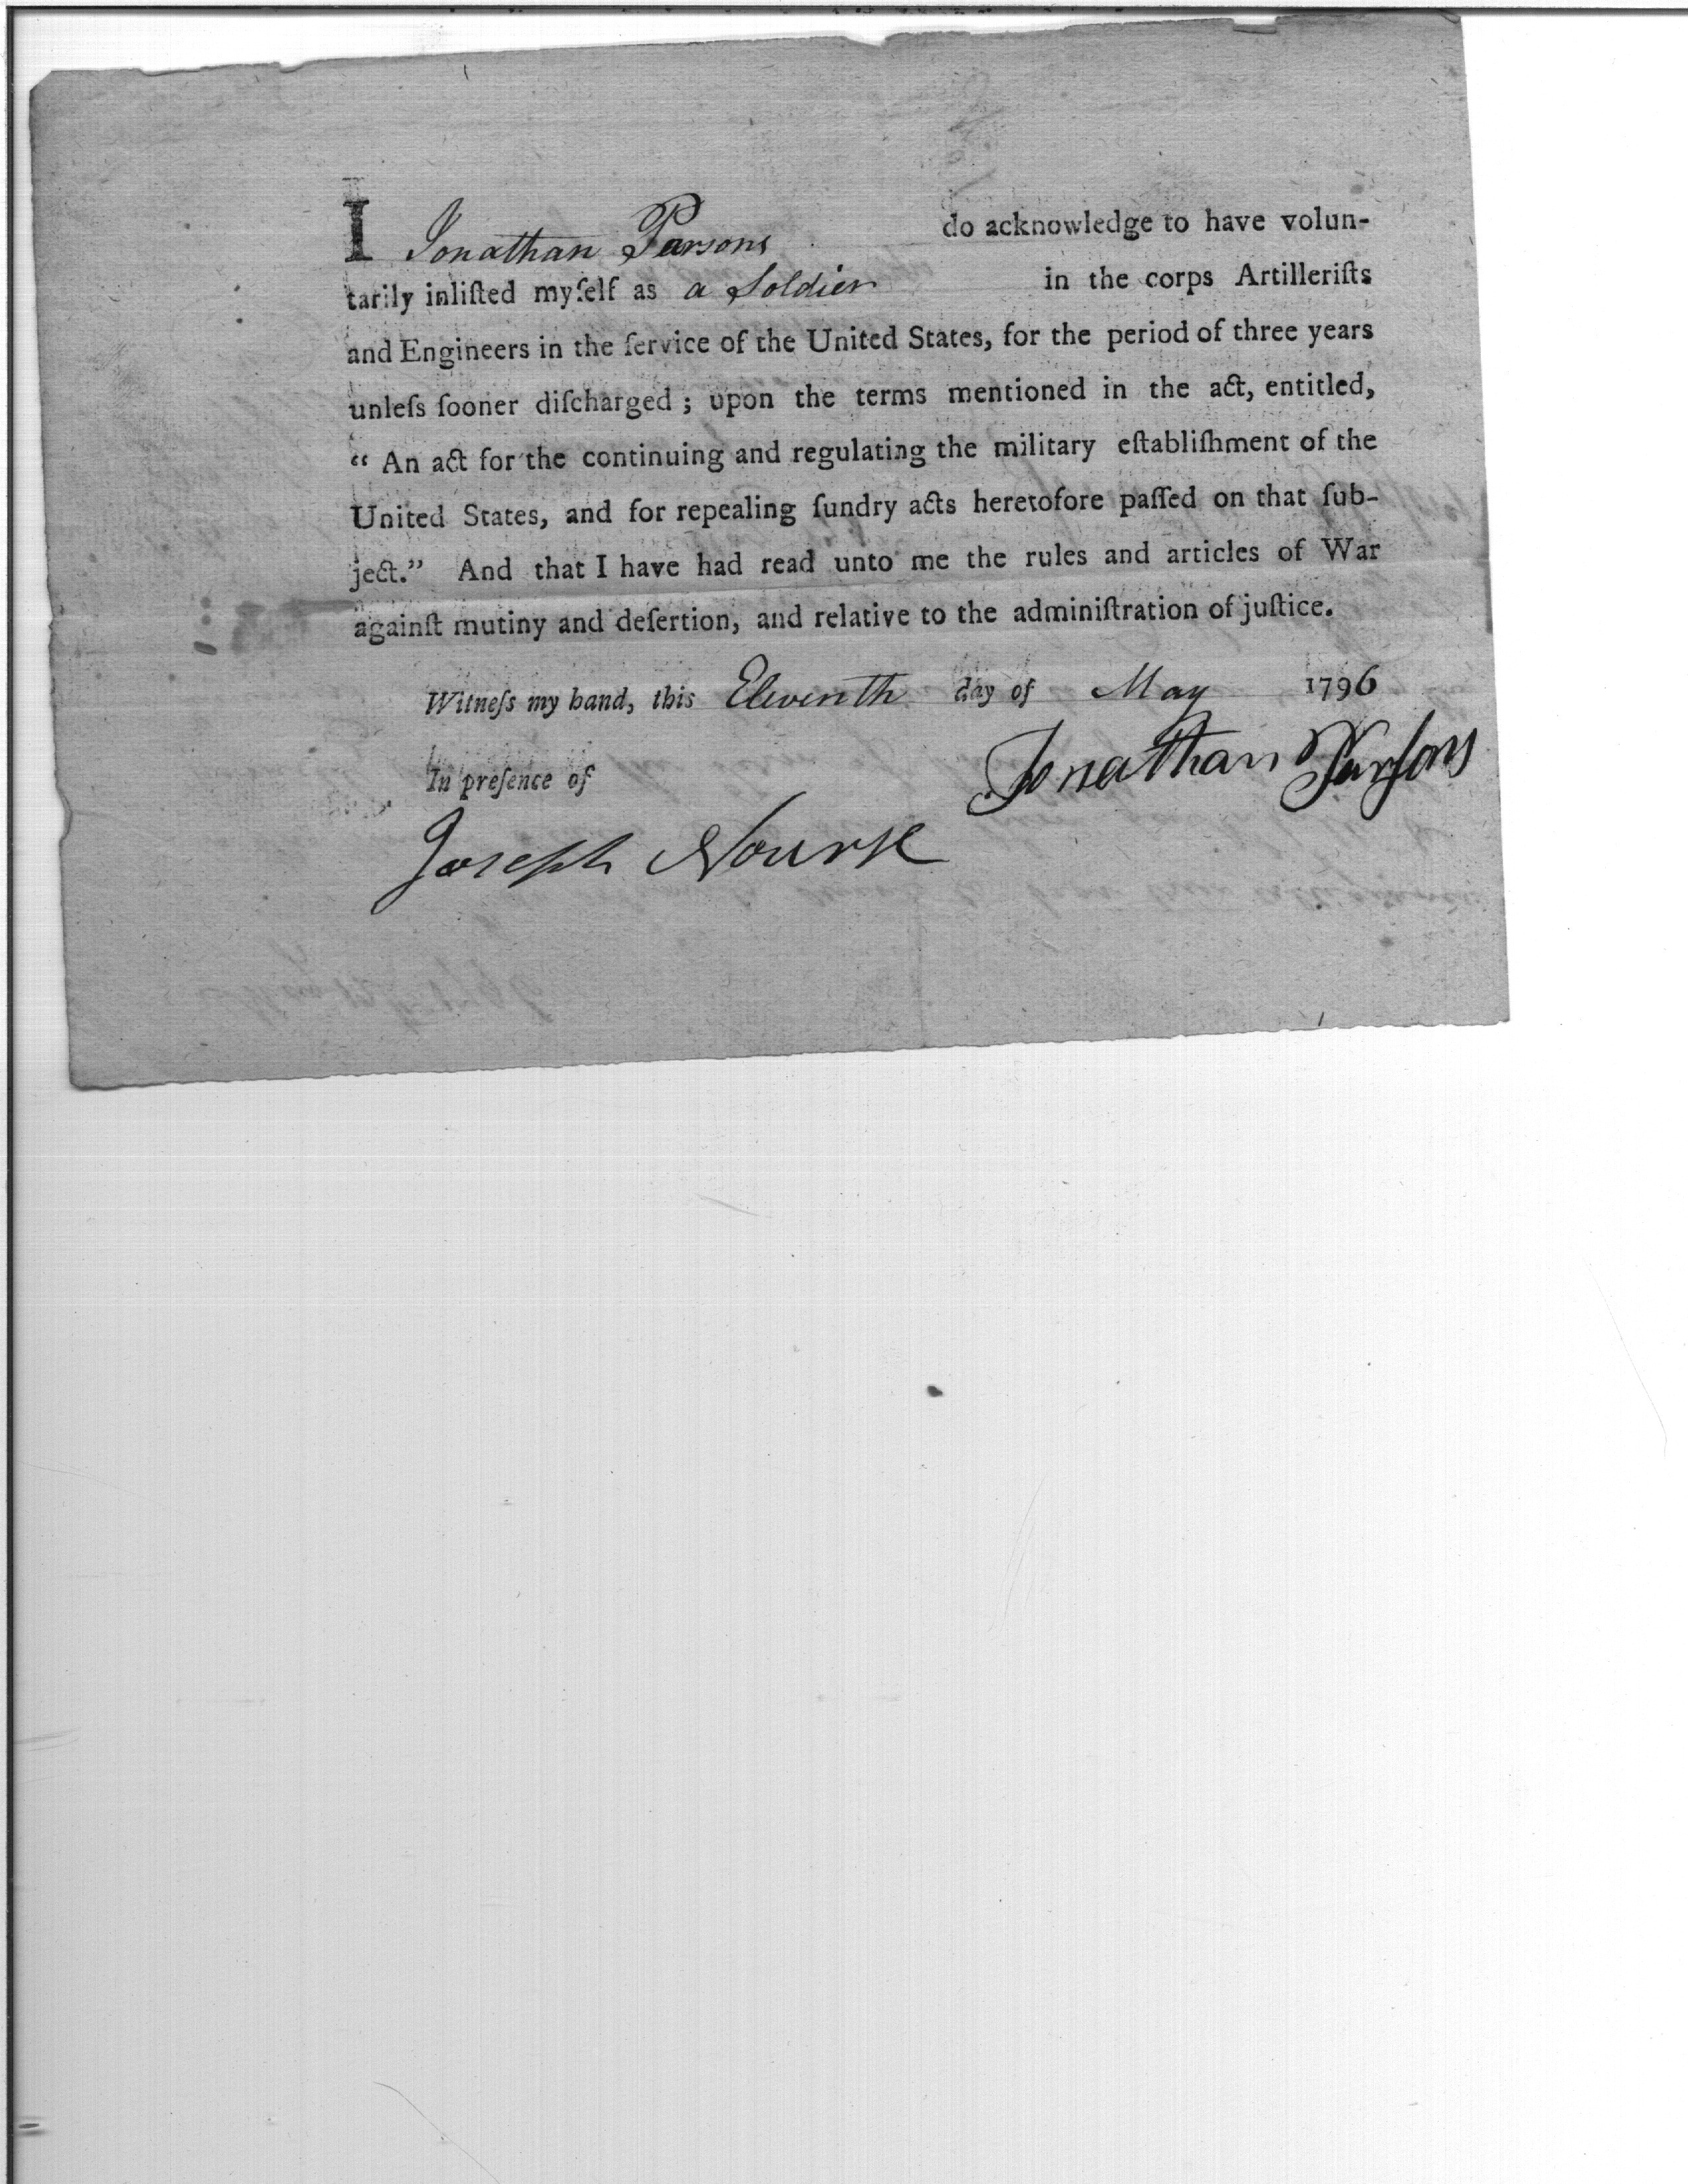 I Jonathan Parsons do acknowledge to have volun-
tarily inliſted myſelf as a Soldier in the corps Artilleriſts
and Engineers in the ſervice of the United States, for the period of three years
unleſs ſooner diſcharged; upon the terms mentioned in the act, entitled,
“ An act for the continuing and regulating the military eſtabliſhment of the
United States, and for repealing ſundry acts heretofore paſſed on that ſub-
ject.” And that I have had read unto me the rules and articles of War
againſt mutiny and deſertion, and relative to the adminiſtration of juſtice.
Witneſs my hand, this Eleventh day of May 1796
Jonathan Parſons
In preſence of
Joseph Nourse